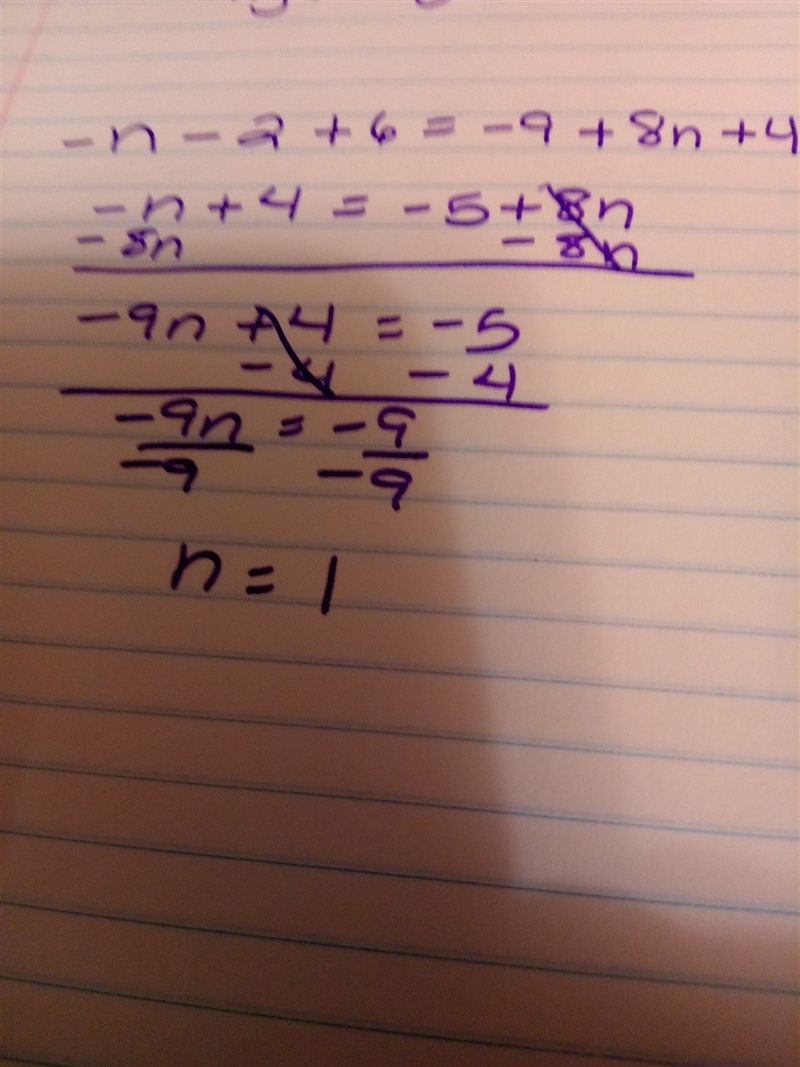 -n - 2 + 6 = -9 + 8n + 4
-n + 4 = -5 + 8n
- 8n - 8n
-9n + 4 = -5
- 4 - 4
-9n = -9
-9 -9
n = 1